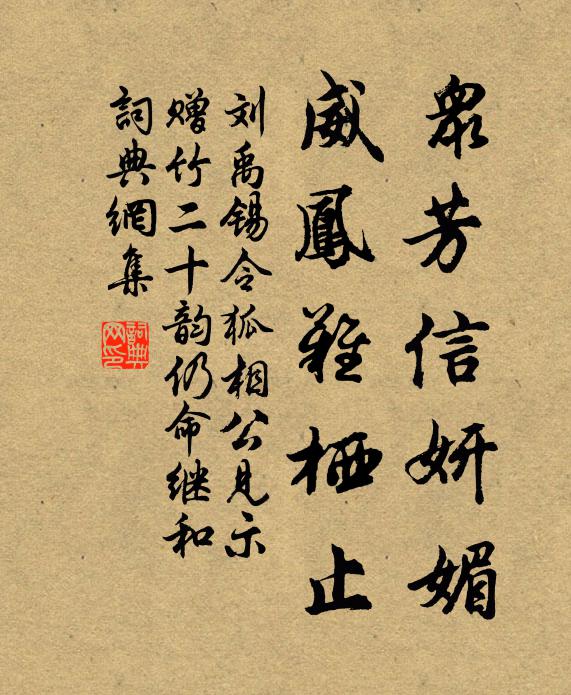 眾芳信妍媚
威鳳難栖止
刘禹锡令狐相公見示
赠竹二十韵仍命继和
詞典網集
詞典网印